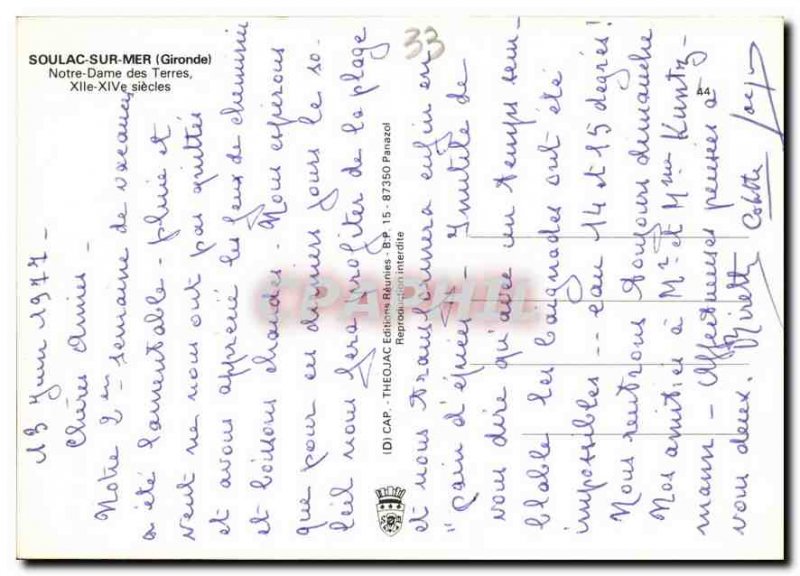 SOULAC-SUR-MER (Gironde)
Notre-Dame des Terres,
XIIe-XIVe siècles
33
44
13 Juin 1977 -
Chères Amies -
Notre 2e semaine de vacances
a été lamentable - pluie et
vent ne nous ont pas quittés
et avons apprécié les feux de cheminée
et boissons chaudes - Nous espérons
que pour ces derniers jours le so-
leil nous fera profiter de la plage
et nous transformera enfin en
"pain d'épices" - Inutile de
vous dire qu'avec un temps sem-
blable les baignades ont été
impossibles -- eau 14 et 15 degrés!
Nous rentrons toujours dimanche
Nos amitiés à Mr et Mme Kuntz-
mann - Affectueuses pensées à
vous deux. Mirette Colette
(D) CAP. - THEOJAC Editions Réunies - B.P. 15 - 87350 Panazol
Reproduction interdite
CPAPHIL